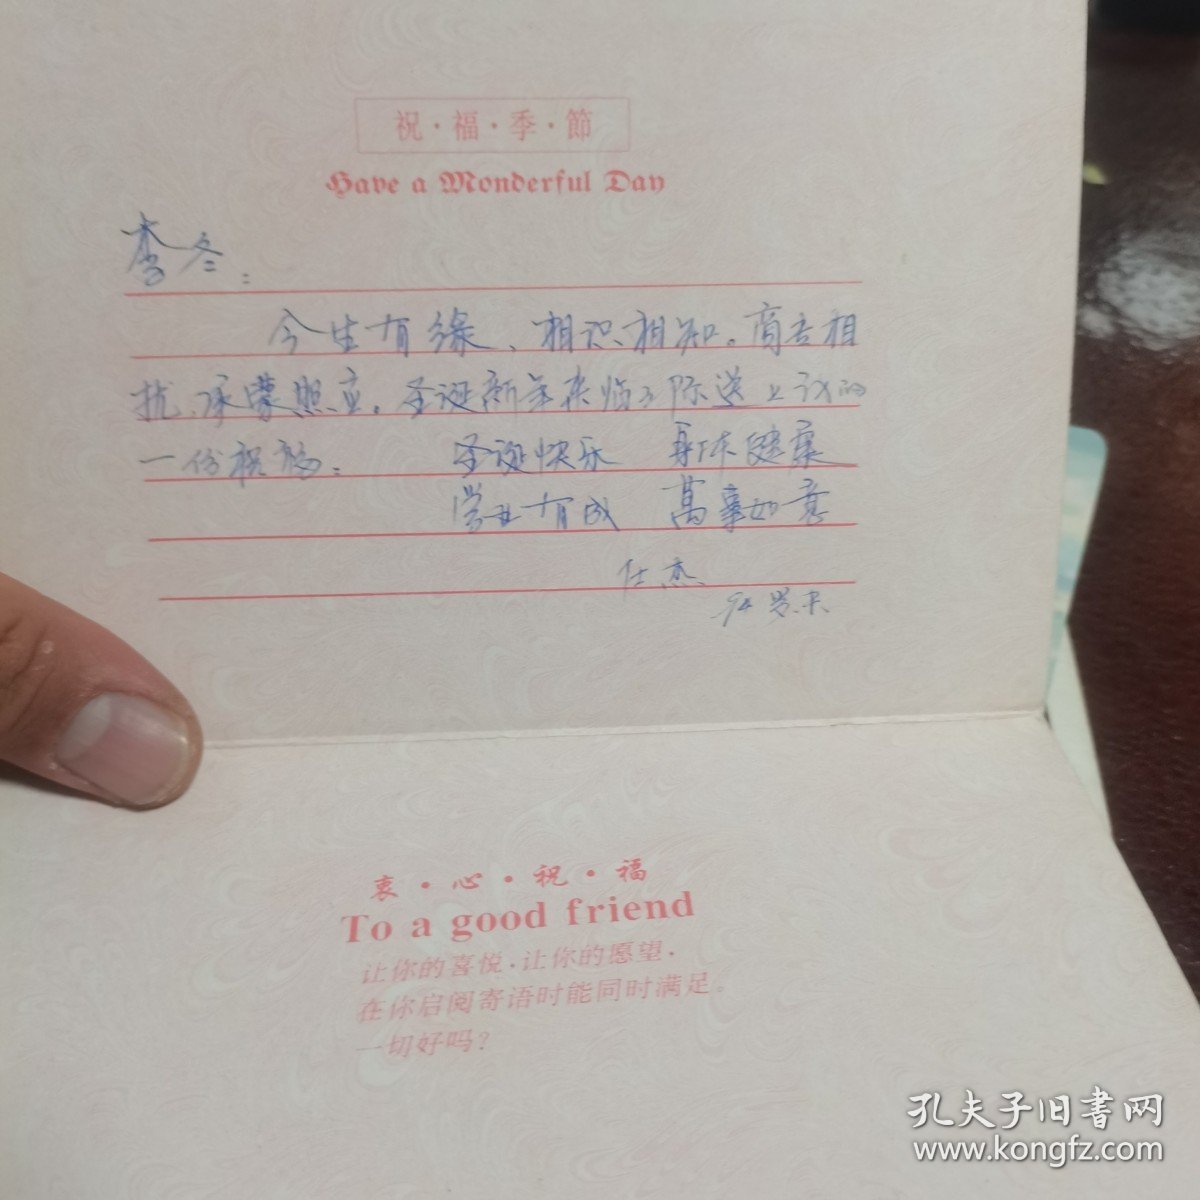 祝·福·季·節
Have a Wonderful Day
李冬：
今生有缘、相识相知。商专相
扰、承蒙照应。圣诞新年来临之际送上我的
一份祝福： 圣诞快乐 身体健康
学业有成 萬事如意
仕杰
94岁末
衷·心·祝·福
To a good friend
让你的喜悦·让你的愿望·
在你启阅寄语时能同时满足。
一切好吗？
孔夫子旧书网
www.kongfz.com